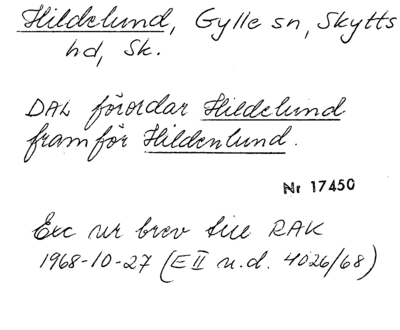 Hildelund, Gylle sn, Skytts
hd, Sk.
DAL förordar Hildelund
framför Hildenlund.
Nr 17450
Exc ur brev till RAK
1968-10-27 (E II u.d. 4026/68)